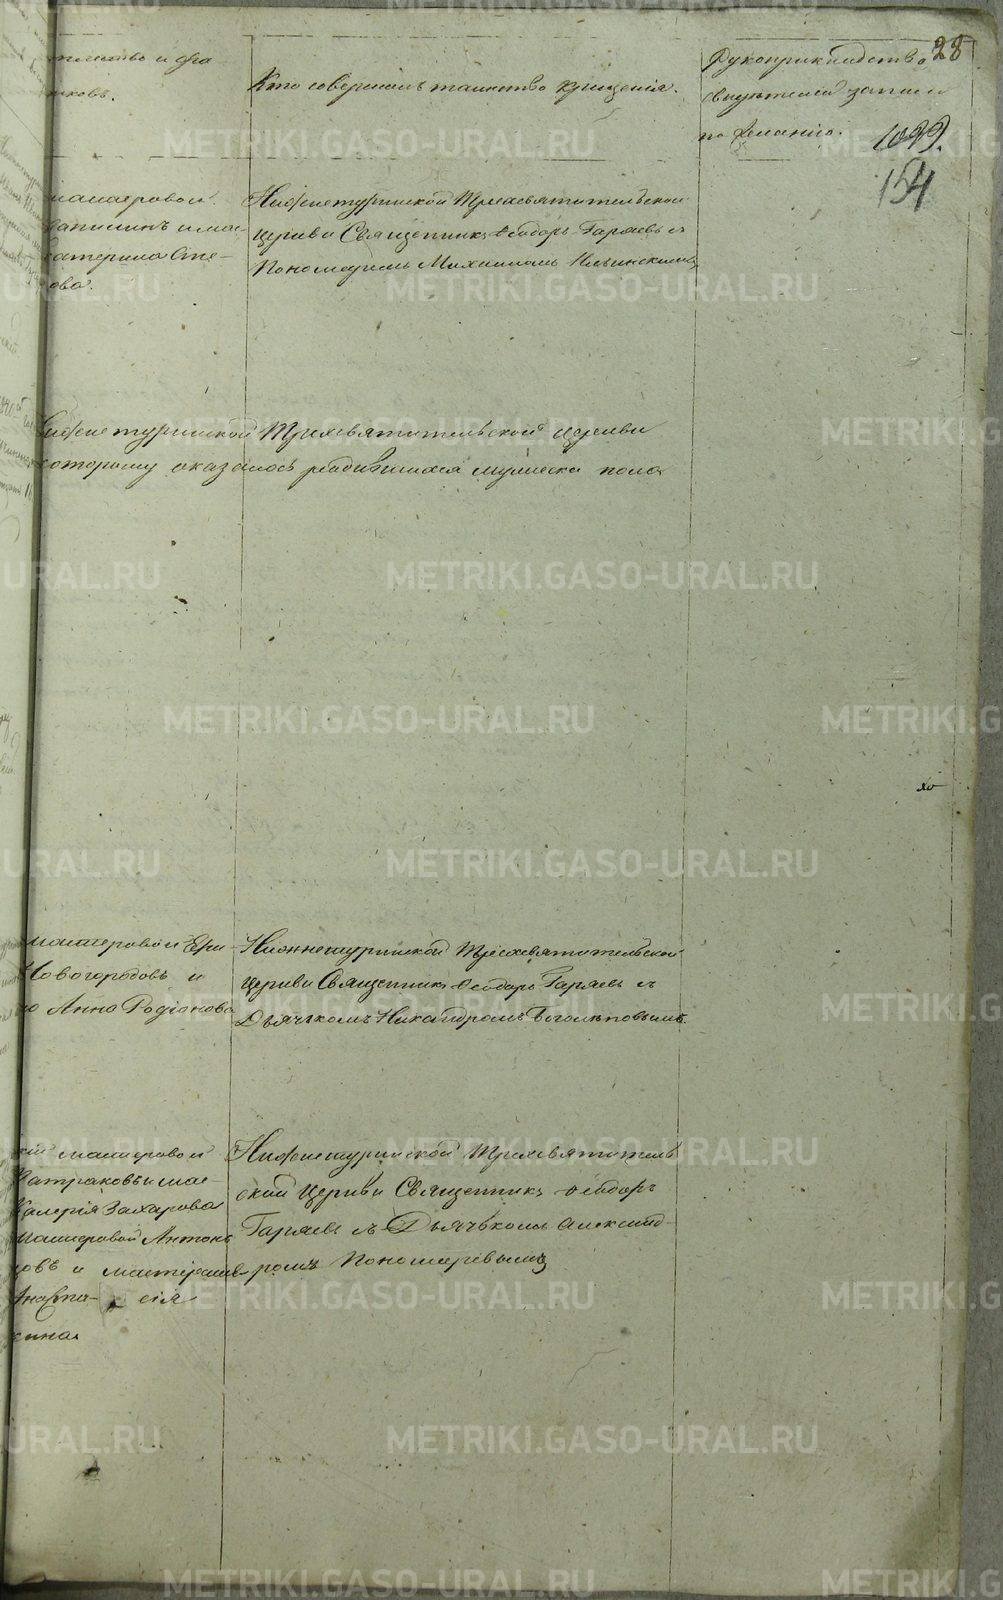 28
Кто совершалъ таинство крещенія.
Рукоприкладство
свидѣтелей записи
по желанію.
1099.
154
мастеровой
Нижнетуринской Трехсвятительской
церкви Священникъ Ѳеодоръ Гаряевъ съ
Пономаремъ Михаиломъ Ильинскимъ
катерина Сте-
ова.
Нижнетуринской Трехсвятительской церкви
которому оказалось родившихся мужеска пола
мастеровой
Новогородовъ и
Анна Родіонова
Нижнетуринской Трехсвятительской
церкви Священникъ Ѳеодоръ Гаряевъ съ
Дьячкомъ Никандромъ Боголѣповымъ.
мастеровой
Батраковъ и мас-
Валерія Захарова
мастеровой Антонъ
цовъ и мастерска
Анаста- сія
Нижнетуринской Трехсвятитель
ской Церкви Священникъ Ѳеодоръ
Гаряевъ съ Дьячкомъ Александ-
ромъ Пономаревымъ
METRIKI.GASO-URAL.RU